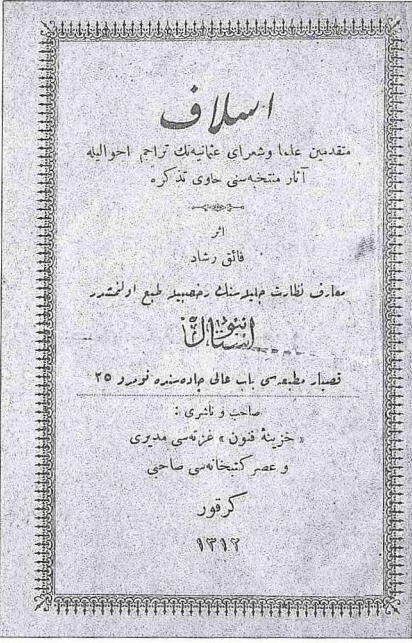 اسلاف
متقدمین علما و شعرای عثمانیه‌نك تراجم احوالیله
آثار منتخبه‌سنی حاوی تذكره
اثر
فائق رشاد
معارف نظارت جلیله‌سنك رخصتیله طبع اولنمشدر
استانبول
قصبار مطبعه‌سی باب عالی جاده‌سنده نومرو ٢٥
صاحب و ناشری :
« خزینهٔ فنون » غزته‌سی مدیری
و عصر كتبخانه‌سی صاحبی
كرقور
١٣١٢